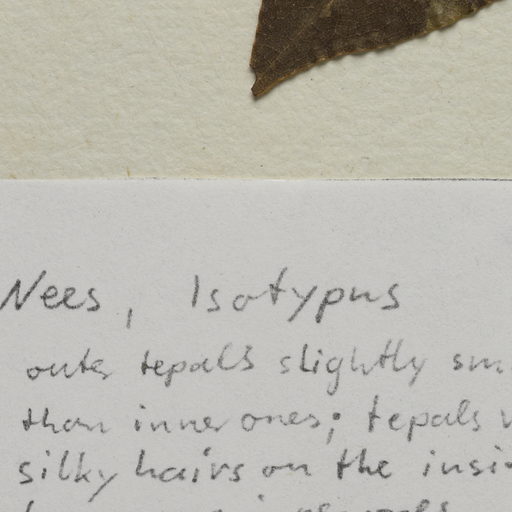 Nees, Isotypus
outer tepals slightly
than inner ones; tepals
silky hairs on the